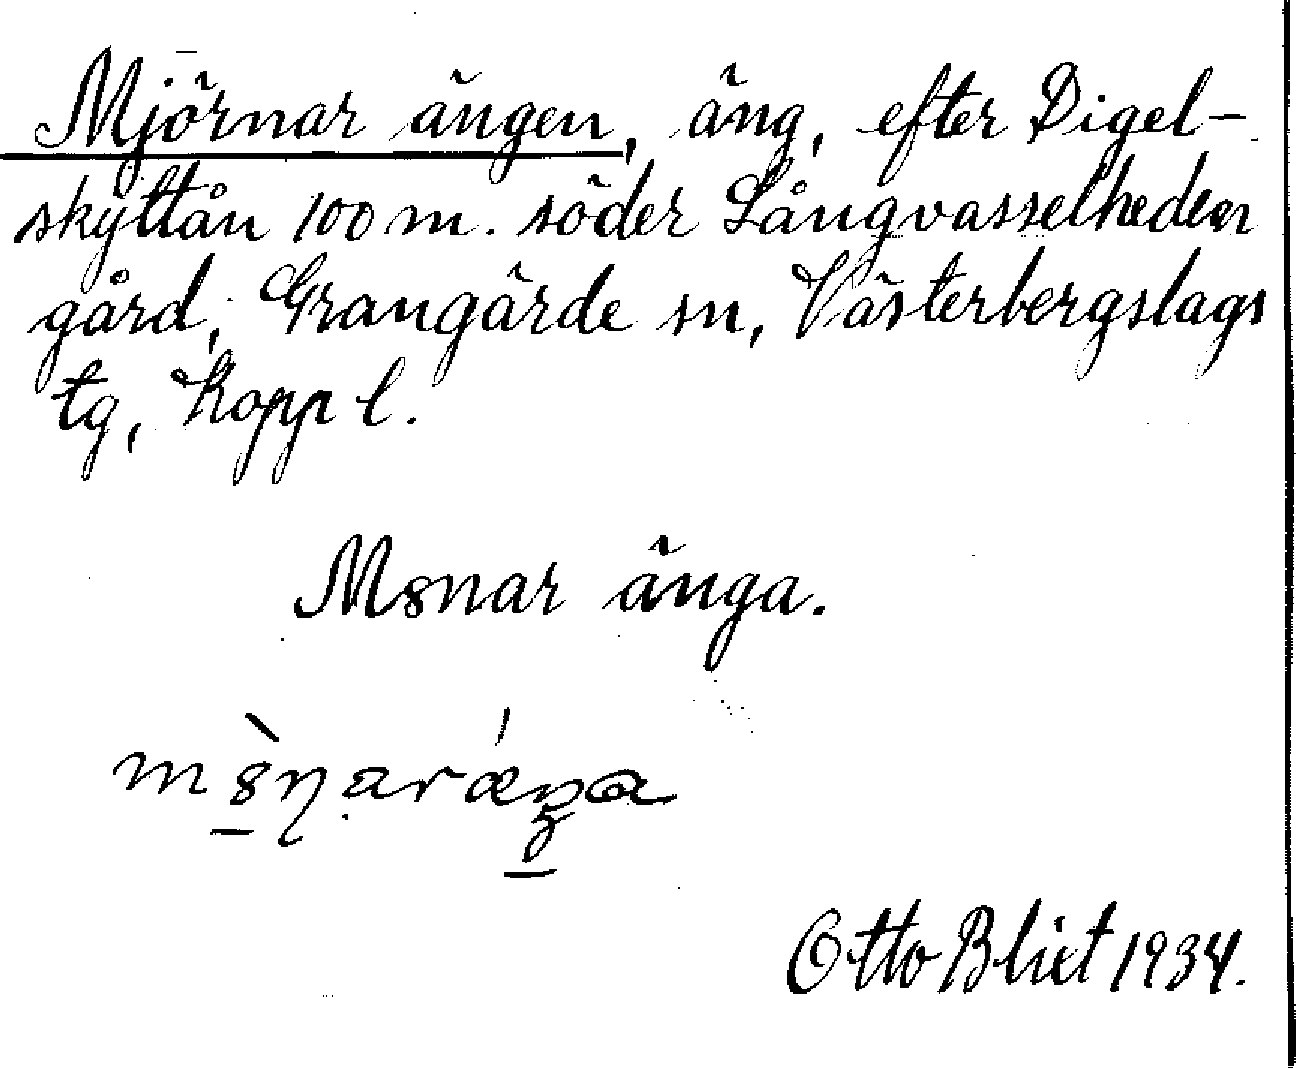 Mjörnar ängen, äng, efter Digel-
skyttån 100 m. söder Långvasselheden
gård, Grangärde sn, Västerbergslags
tg, Kopp l.
M8nar änga.
m8̀ɳaráeŋa
Otto Blixt 1934.